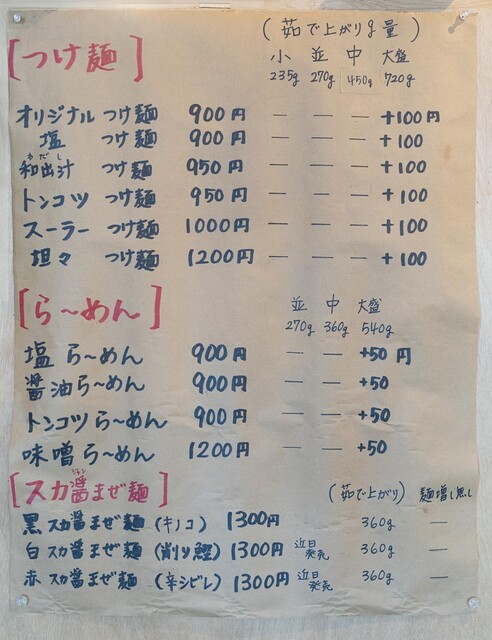 (茹で上がりg量)
[つけ麺] 小 並 中 大盛
235g 270g 450g 720g
オリジナル つけ麺 900円 — — — +100円
塩 つけ麺 900円 — — — +100
わだし
和出汁 つけ麺 950円 — — — +100
トンコツ つけ麺 950円 — — — +100
スーラー つけ麺 1000円 — — — +100
坦々 つけ麺 1200円 — — — +100
[ら〜めん] 並 中 大盛
270g 360g 540g
塩 ら〜めん 900円 — — +50円
醤油ら〜めん 900円 — — +50
トンコツ ら〜めん 900円 — — +50
味噌ら〜めん 1200円 — — +50
ジャン
[スカ醤まぜ麺] (茹で上がり) 麺増し無し
黒スカ醤まぜ麺 (キノコ) 1300円 360g —
白スカ醤まぜ麺 (削り鰹) 1300円 近日発売 360g —
赤スカ醤まぜ麺 (辛シビレ) 1300円 近日発売 360g —